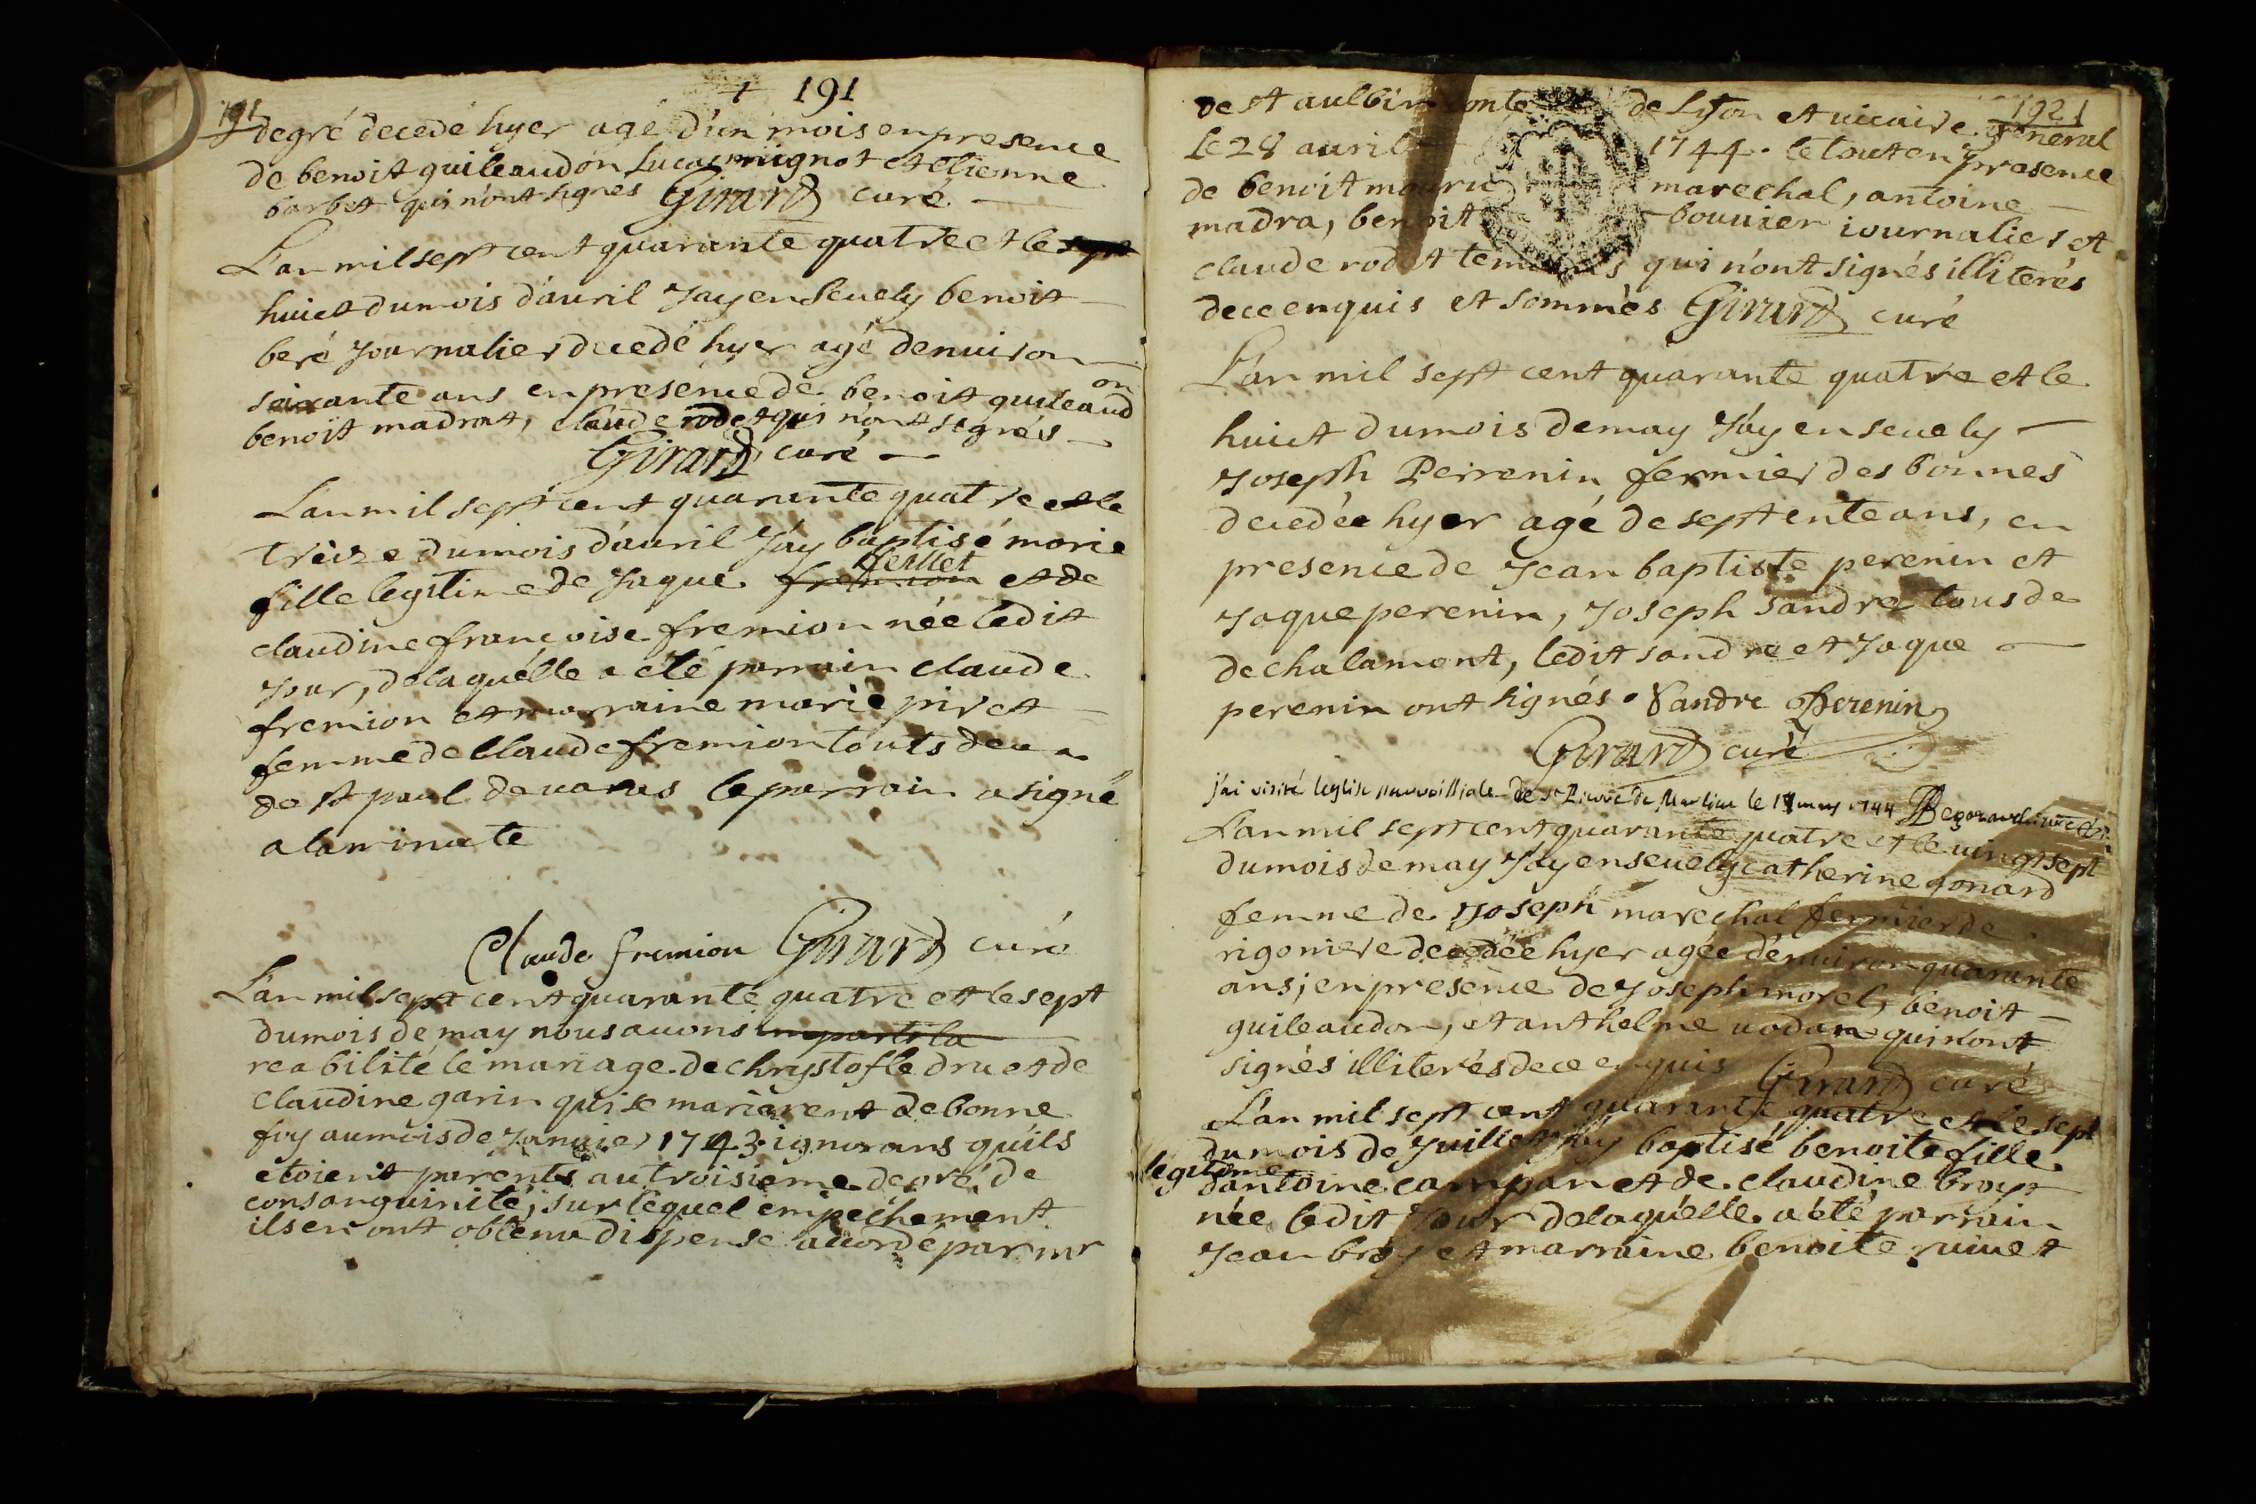 191
+ 191
degré decedé hyer agé d'un mois en presence
de benoit guileaudon Lucas mignot et etienne
barbet qui n'ont signés Girard curé
L'an mil sept cent quarante quatre et le sept
huict du mois d'avril Jay ensevely benoit
beré Journalier decedé hyer agé denviron
soixante ans en presence de benoit guileaud
on
benoit madrat, claude rodet qui n'ont signés
Girard curé
L'an mil sept cent quarante quatre et le
treize du mois d'avril Jáy baptisé marie
fille legitime de Jaque fremion et de
claudine françoise fremion née ledit
Jour, de laquélle a eté parrain claude
fremion et marraine marie pivet
femme de Claude fremion touts deux
de st paul de varas le parrain a signé
a la minute
Claude fremion Girard curé
L'an mil sept cent quarante quatre et le sept
du mois de may nous avons imparti la
reabilité le mariage de chrystofle dru et de
claudine garin qui se mariarent de bonne
foy au mois de Janvier 1743 ignorans qu'ils
etoient parents au troisieme degré de
consanguinité, sur lequel empechement
ils en ont obtenu dispense accordé par mr
1921
de st aulbin conte de Lyon et vicaire general
le 28 avril 1744. le tout en presence
de benoit marechal, antoine
madra, benoit bouvier iournalier et
claude rodet temoins qui n'ont signés illiterés
de ce enquis et sommés Girard curé
L'an mil sept cent quarante quatre et le
huict du mois de may Jáy ensevely
Joseph Perrenin fermier des bonnes
decedée hyer agé de septente ans, en
presence de Jean baptiste perenin et
Jaque perenin, Joseph sandre tous de
de chalamont, ledit sandre et Jaque
perenin ont signés. Sandre Perenin
Girard curé
j'ai visité leglise parroissiale de st Pierre de le may 1744
L'an mil sept cent quarante quatre et le vingt sept
du mois de may Jay ensevely catherine gonard
femme de Joseph marechal fermier de
rigoniere decedée hyer agée d'environ quarante
ans, en presence de Joseph morel, benoit
guileaudon, et anthelme vodan qui n'ont
signés illiterés de ce enquis Girard curé
L'an mil sept cent quarante quatre et le sept
du mois de Juillet Jáy baptisé benoite fille
legitime
d'antoine campan et de claudine broyt
née ledit Jour de laquélle a été parrain
Jean broy et marraine benoite ruivet